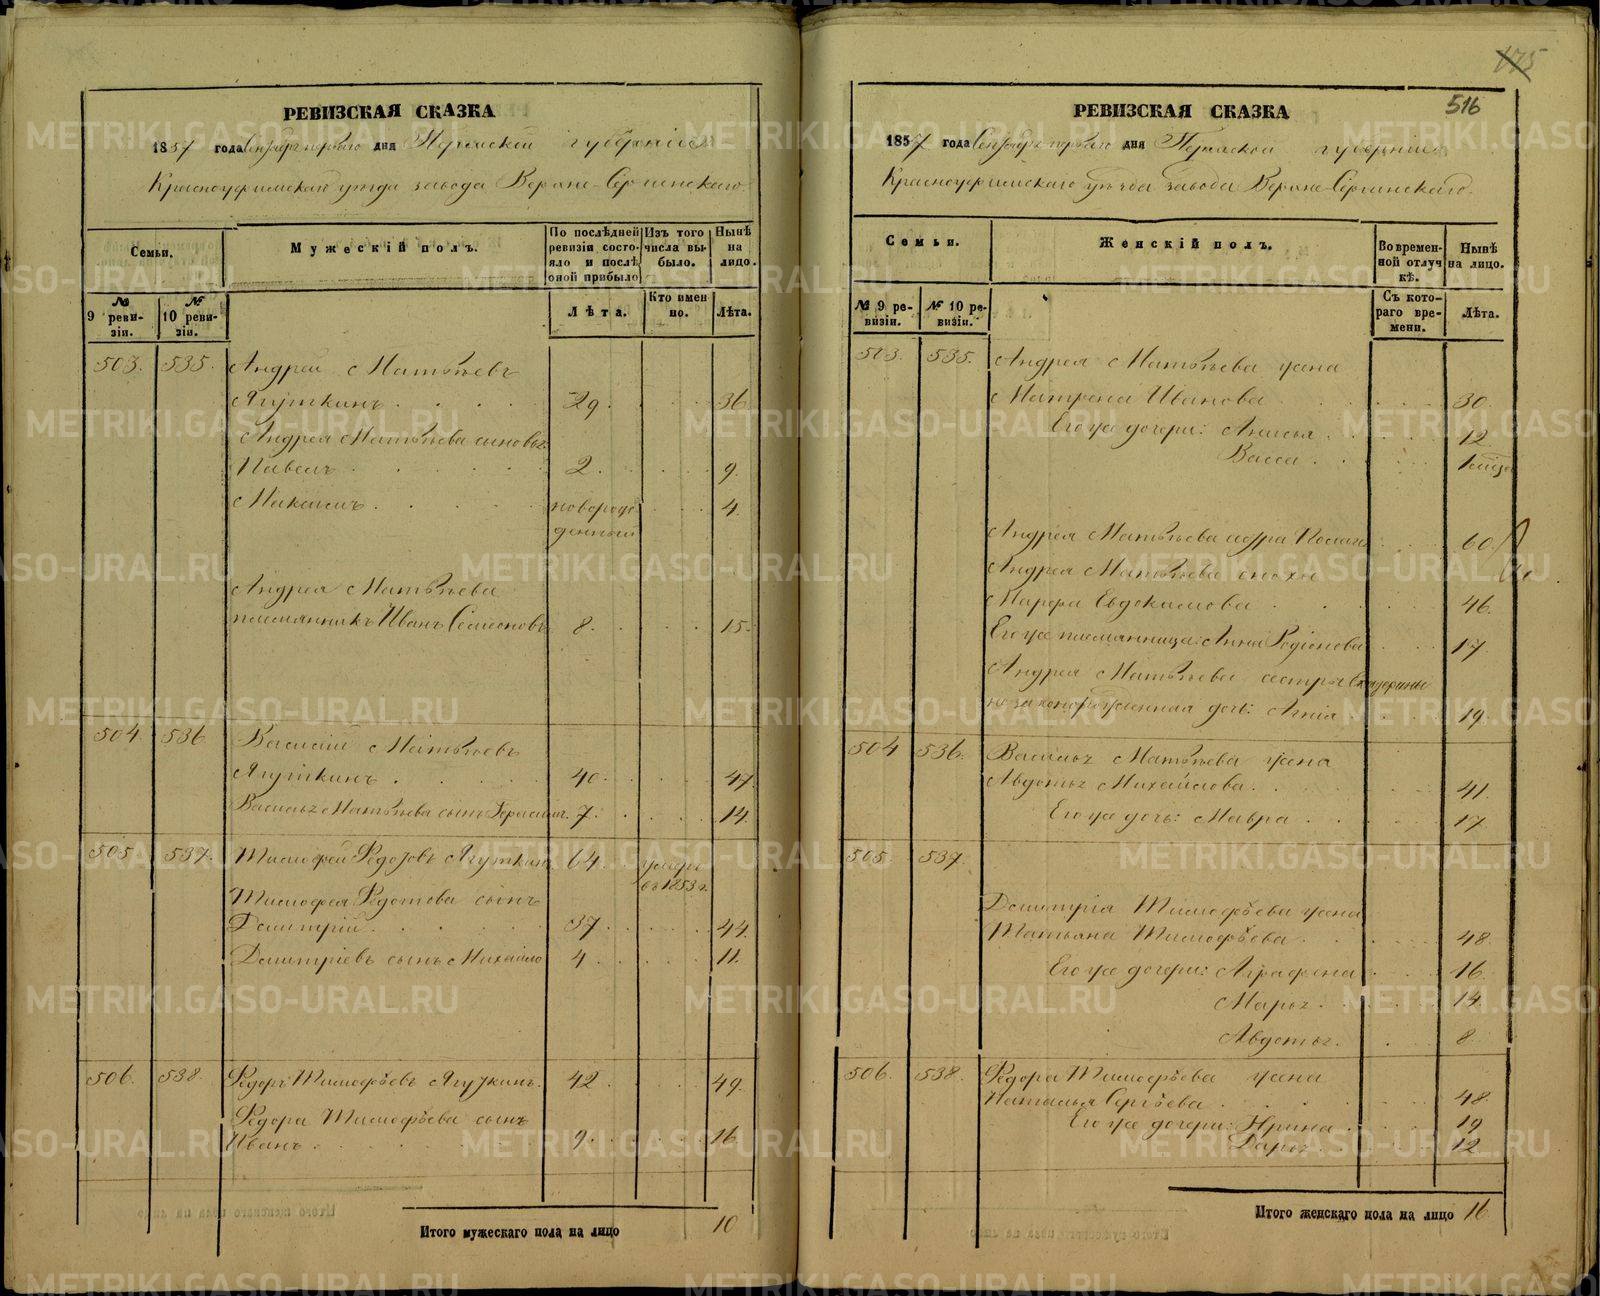 РЕВИЗСКАЯ СКАЗКА
1857 года Сентября первого дня Пермской губернии
Красноуфимскаго уезда завода Верхне-Сергинскаго.
Семьи.
Мужескій полъ.
По послѣдней ревизіи состояло и послѣ оной прибыло
Изъ того числа выбыло.
Нынѣ на лицо.
№ 9 ревизіи.
№ 10 ревизіи.
Лѣта.
Кто именно.
Лѣта.
503. 535. Андрей Матвѣевъ
Ягуткинъ 29. 36.
Андрея Матвѣева сыновья
Павелъ 2. 9.
Максимъ новорож 4.
денный
Андрея Матвѣева
племянникъ Иванъ Семеновъ 8. 15.
504. 536. Василій Матвѣевъ
Ягуткинъ 40. 47.
Василья Матвѣева сынъ Герасимъ. 7. 14.
505. 537. Тимофей Федотовъ Ягуткинъ 64. умеръ
въ 1853 г.
Тимофея Федотова сынъ
Дмитрій 37. 44.
Дмитріевъ сынъ Михайло 4. 11.
506. 538. Федоръ Тимофѣевъ Ягуткинъ. 42. 49.
Федора Тимофѣева сынъ
Иванъ 9. 16.
Итого мужескаго пола на лицо 10
175
516
РЕВИЗСКАЯ СКАЗКА
1857 года Сентября первого дня Пермской губерніи
Красноуфимскаго уѣзда завода Верхне-Сергинскаго.
Семьи.
Женскій полъ.
Во временной отлучкѣ.
Нынѣ на лицо.
№ 9 ревизіи.
№ 10 ревизіи.
Съ котораго времени.
Лѣта.
503. 535. Андрея Матвѣева жена
Матрена Иванова 30
Его же дочери: Анисья 12.
Васса 1 мѣсяца
Андрея Матвѣева сестра 60.
Андрея Матвѣева сноха
Марфа Евдокимова 46.
Его же племянница: Анна Родіонова 17
Андрея Матвѣева сестры Екатерины
незаконорожденная дочь: Агнія 19.
504 536. Василья Матвѣева жена
Авдотья Михайлова. 41.
Его же дочь: Мавра 17
505. 537.
Дмитрія Тимофѣева жена
Татьяна Тимофѣева 48.
Его же дочери: Аграфена 16.
Марья 14.
Авдотья. 8.
506. 538. Федора Тимофѣева жена
Наталья Сергѣева 48.
Его же дочери: Ирина 19
Дарья 12.
Итого женскаго пола на лицо 16
METRIKI.GASO-URAL.RU